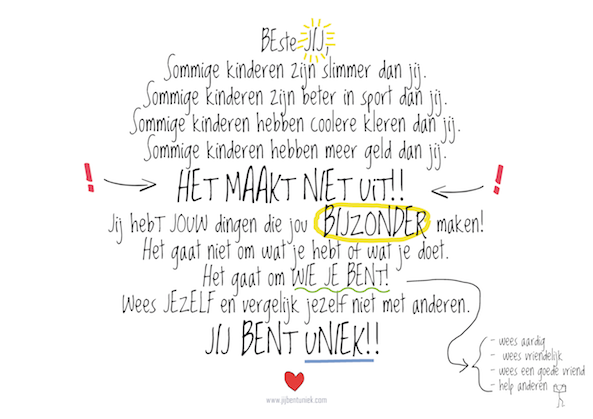 BEste JIJ,
Sommige kinderen zijn slimmer dan jij.
Sommige kinderen zijn beter in sport dan jij.
Sommige kinderen hebben coolere kleren dan jij.
Sommige kinderen hebben meer geld dan jij.
! HET MAAKT NIET UiT!! !
Jij hebT JOUW dingen die jou BIJZONDER maken!
Het gaat niet om wat je hebt of wat je doet.
Het gaat om WIE JE BENT!
Wees JEZELF en vergelijk jezelf niet met anderen.
JIJ BENT UNIEK!!
- wees aardig
- wees vriendelijk
- wees een goede vriend
- help anderen
www.jijbentuniek.com